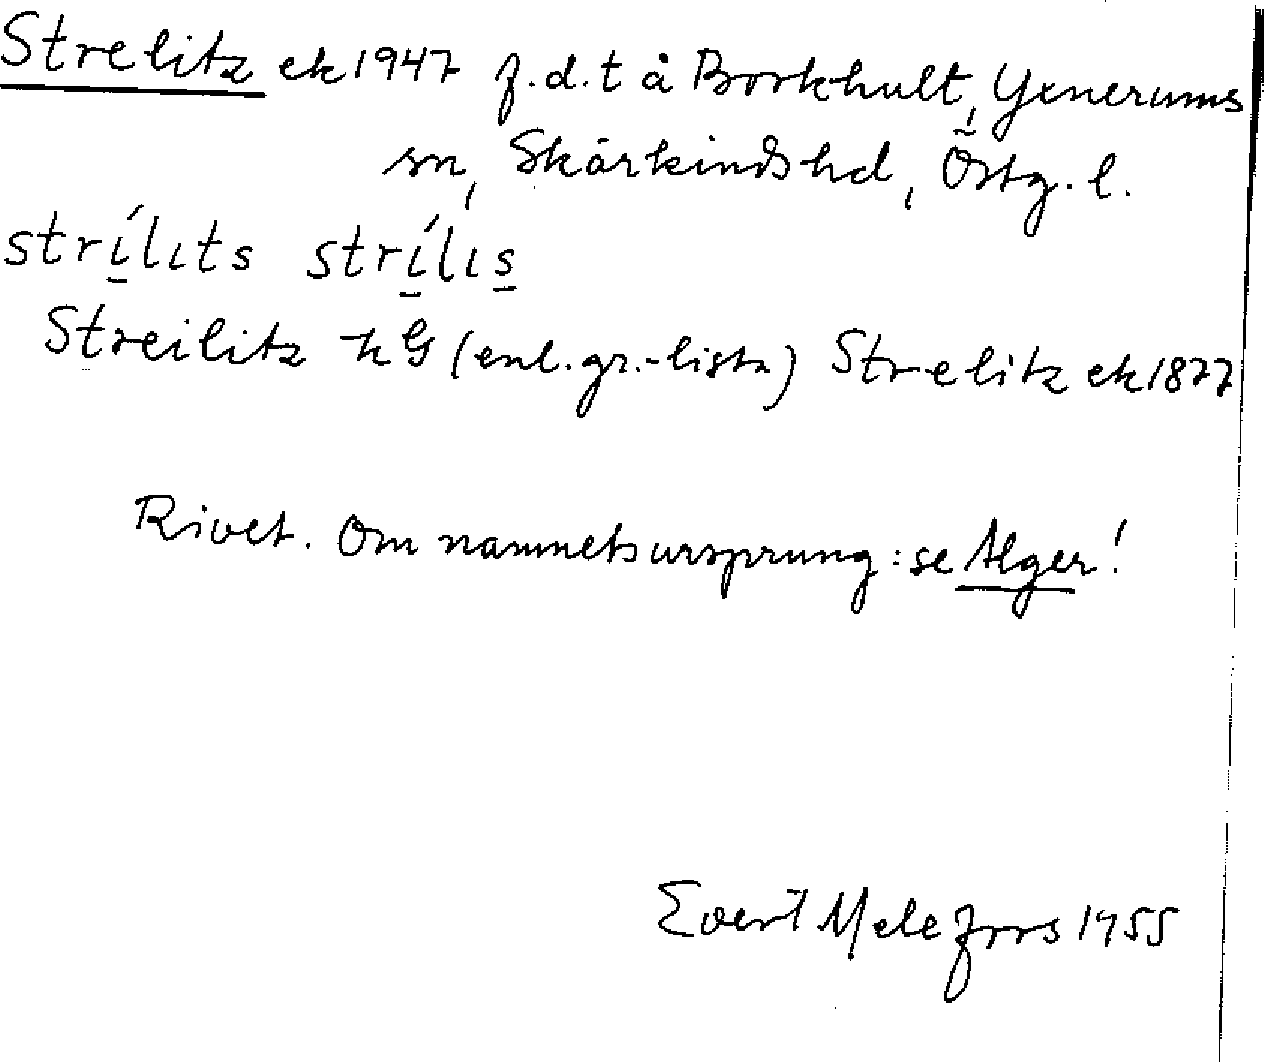 Strelitz ek 1947 f.d.t å Borkhult, Yxnerums
sn, Skärkinds hd, Östg. l.
strí̱lıts strí̱lıs̱
Streilitz hG (enl. gr.-lista) Strelitz ek 1877
Rivet. Om namnets ursprung: se Alger!
Evert Melefors 1955